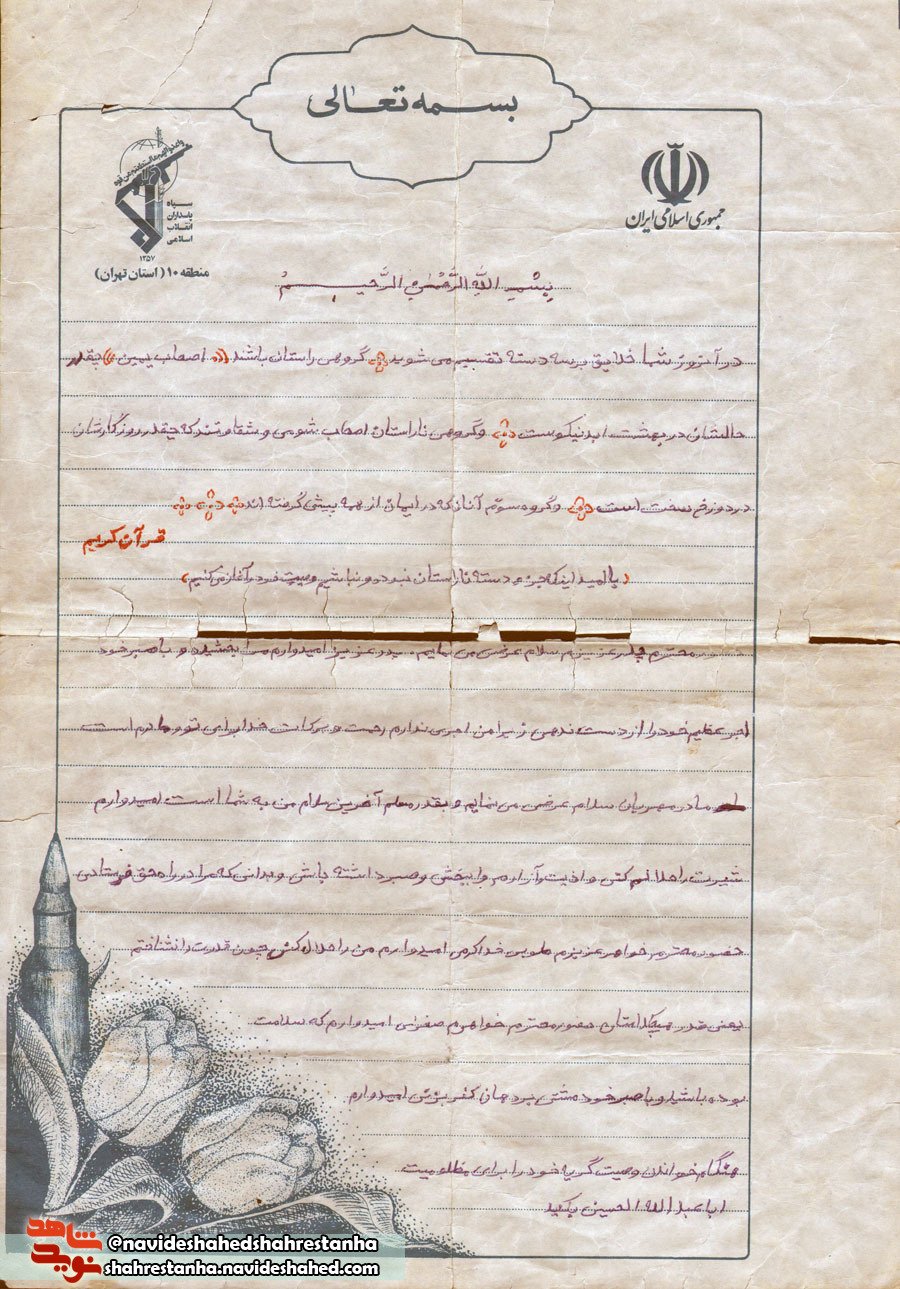 بسمه تعالی
جمهوری اسلامی ایران
سپاه
پاسداران
انقلاب
اسلامی
۱۳۵۷
منطقه ۱۰ ( استان تهران)
بِسْمِ اللهِ الرَّحْمٰنِ الرَّحیـمْ
در آنروز شما خلایق بر سه دسته تقسیم می شوید گروهی راستان باشند (( اصحاب یمین )) چقدر
حالشان در بهشت ابد نیکوست وگروهی ناراستان اصحاب شومی و شقاوتند که چقدر روزگارشان
در دوزخ سخت است و گروه سوّم آنان که در ایمان از همه پیشی گرفته اند
قرآن کریم
(با امید اینکه جزء دسته ناراستان نبوده و نباشیم وصیت خود را آغاز می کنیم)
محترم پدر عزیزم سلام عرض می نمایم . پدر عزیز امیدوارم مرا بخشیده و با صبر خود
اجر عظیم خود را از دست ندهی زیرا من اجری ندارم رحمت و برکات خدا برای تو و مادرم است
مادر مهربان سلام عرض می نمایم و بقدر معلم آخرین سلام من به شما است امیدوارم
شیرت را حلالم کنی و اذیت و آزارم را ببخش و صبر داشته باش و بدانی که مرا در راه حق فرستادی
حضور محترم خواهر عزیزم خدا کرمی امیدوارم من را حلال کنی چون قدرت را نشناختم
یعنی قدر حضور محترم خواهرم صغری امیدوارم که سلامت
بوده باشید و با صبر خود مشتی بر دهان کفر بزنی امیدوارم
هنگام خواندن وصیت گریه خود را برای مظلومیت
ابا عبدالله الحسین بکنید
شاهد
نوید
@navideshahedshahrestanha
shahrestanha.navideshahed.com